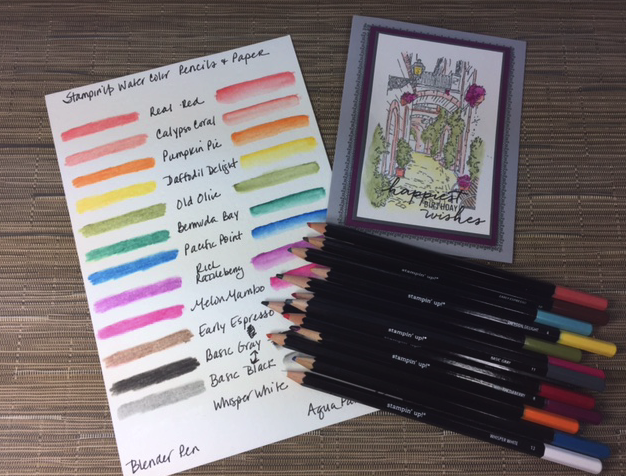 Stampin'Up Water Color Pencils & Paper
Real Red
Calypso Coral
Pumpkin Pie
Daffodil Delight
Old Olive
Bermuda Bay
Pacific Point
Rich
Razzleberry
Melon Mambo
Early Espresso
Basic Gray
Basic Black
Whisper White
Blender Pen
Aqua
happiest
BIRTHDAY
wishes
stampin' up!®
stampin' up!®
DAFFODIL DELIGHT
stampin' up!®
BASIC GRAY
stampin' up!®
stampin' up!®
WHISPER WHITE